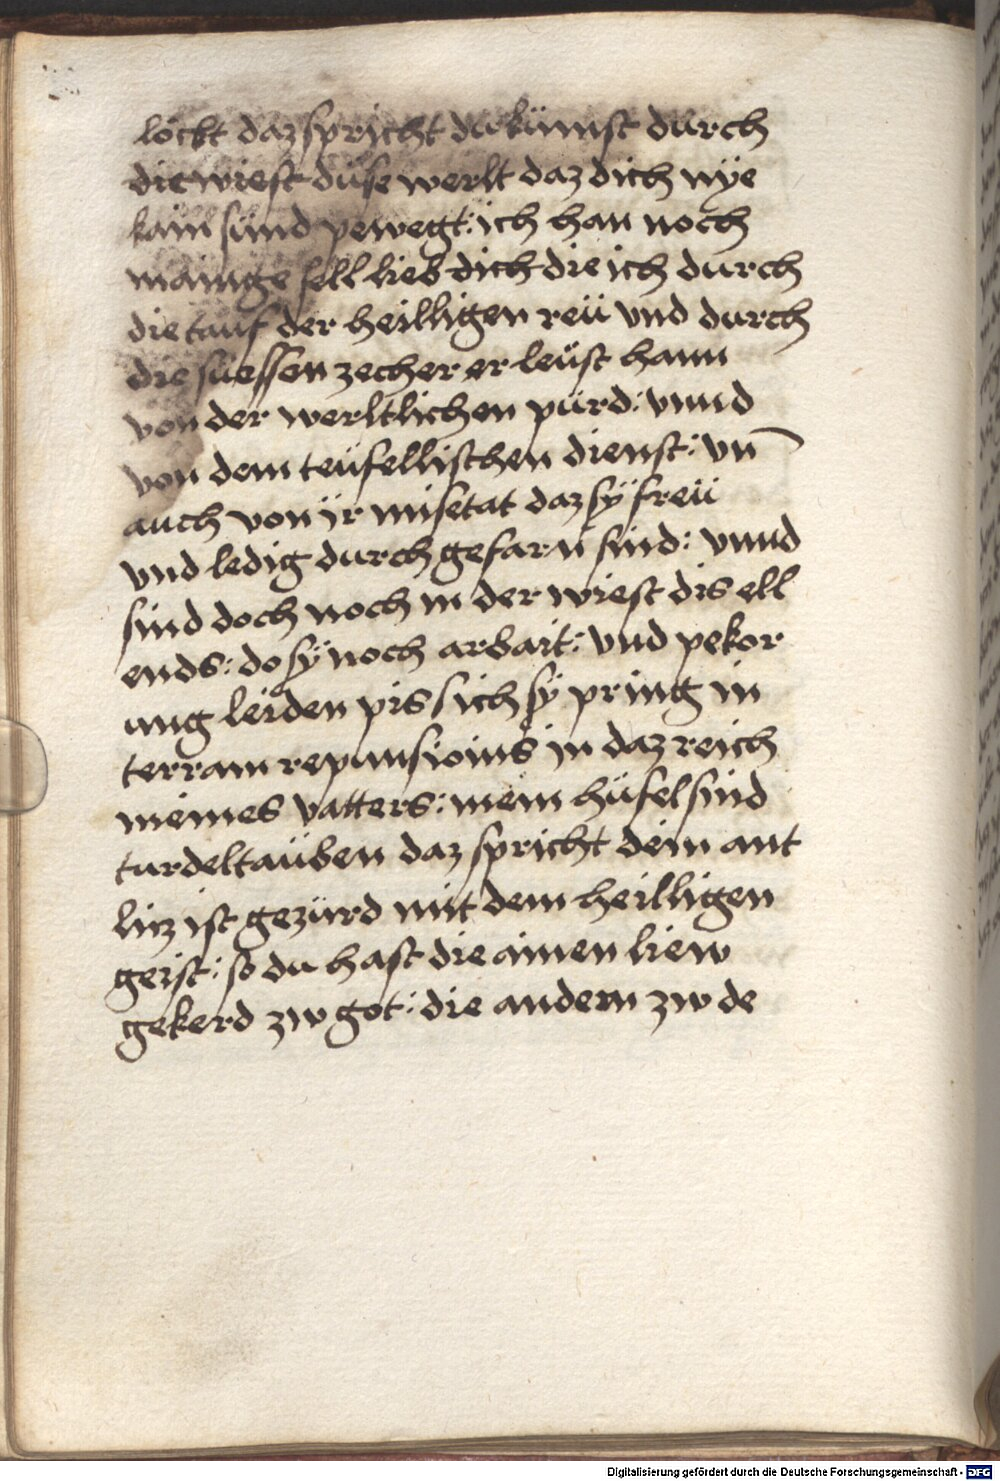 löckt daz spricht du kümst durch
die wiest düse werlt daz dich nÿe
kain sünd pewegt: ich han noch
mainge sell lieb dich die ich durch
die tauf der heilligen reü vnd durch
die suessen zecher er leüst hann
von der werltlichen pürd: vnnd
von dem teüfellischen dienst: vn̄
auch von ÿr misetat daz sÿ freü
vnd ledig durch gefarn sind: vnnd
sind doch noch in der wiest dis ell
ends: do sÿ noch arbait: vnd pekor
ung leiden pis sich sÿ pring in
terram repunsionis in daz reich
meines vatters: mein hüfel sind
turdeltaüben daz spricht dein ant
litz ist gezürd mit dem heilligen
geist: so du hast die ainen liew
gekerd zw got: die andern zw de
Digitalisierung gefördert durch die Deutsche Forschungsgemeinschaft - DFG